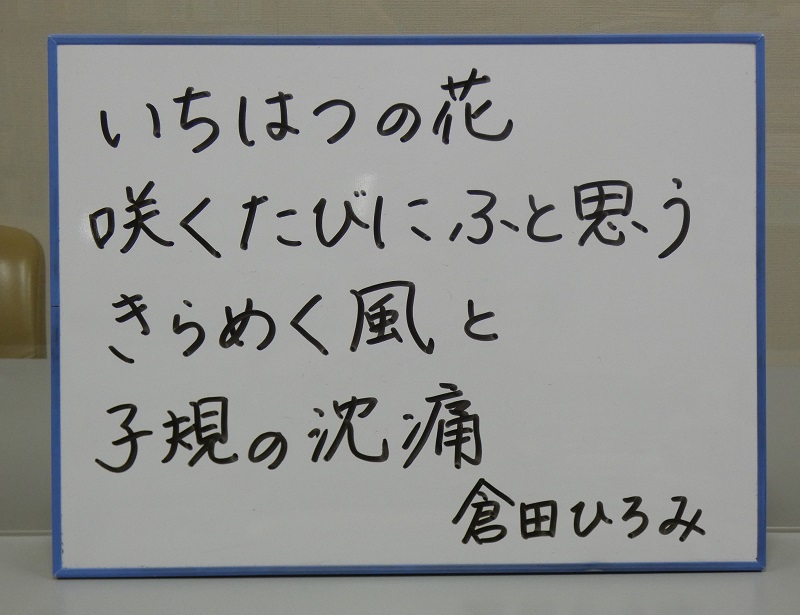 いちはつの花
咲くたびにふと思う
きらめく風と
子規の沈痛
倉田ひろみ